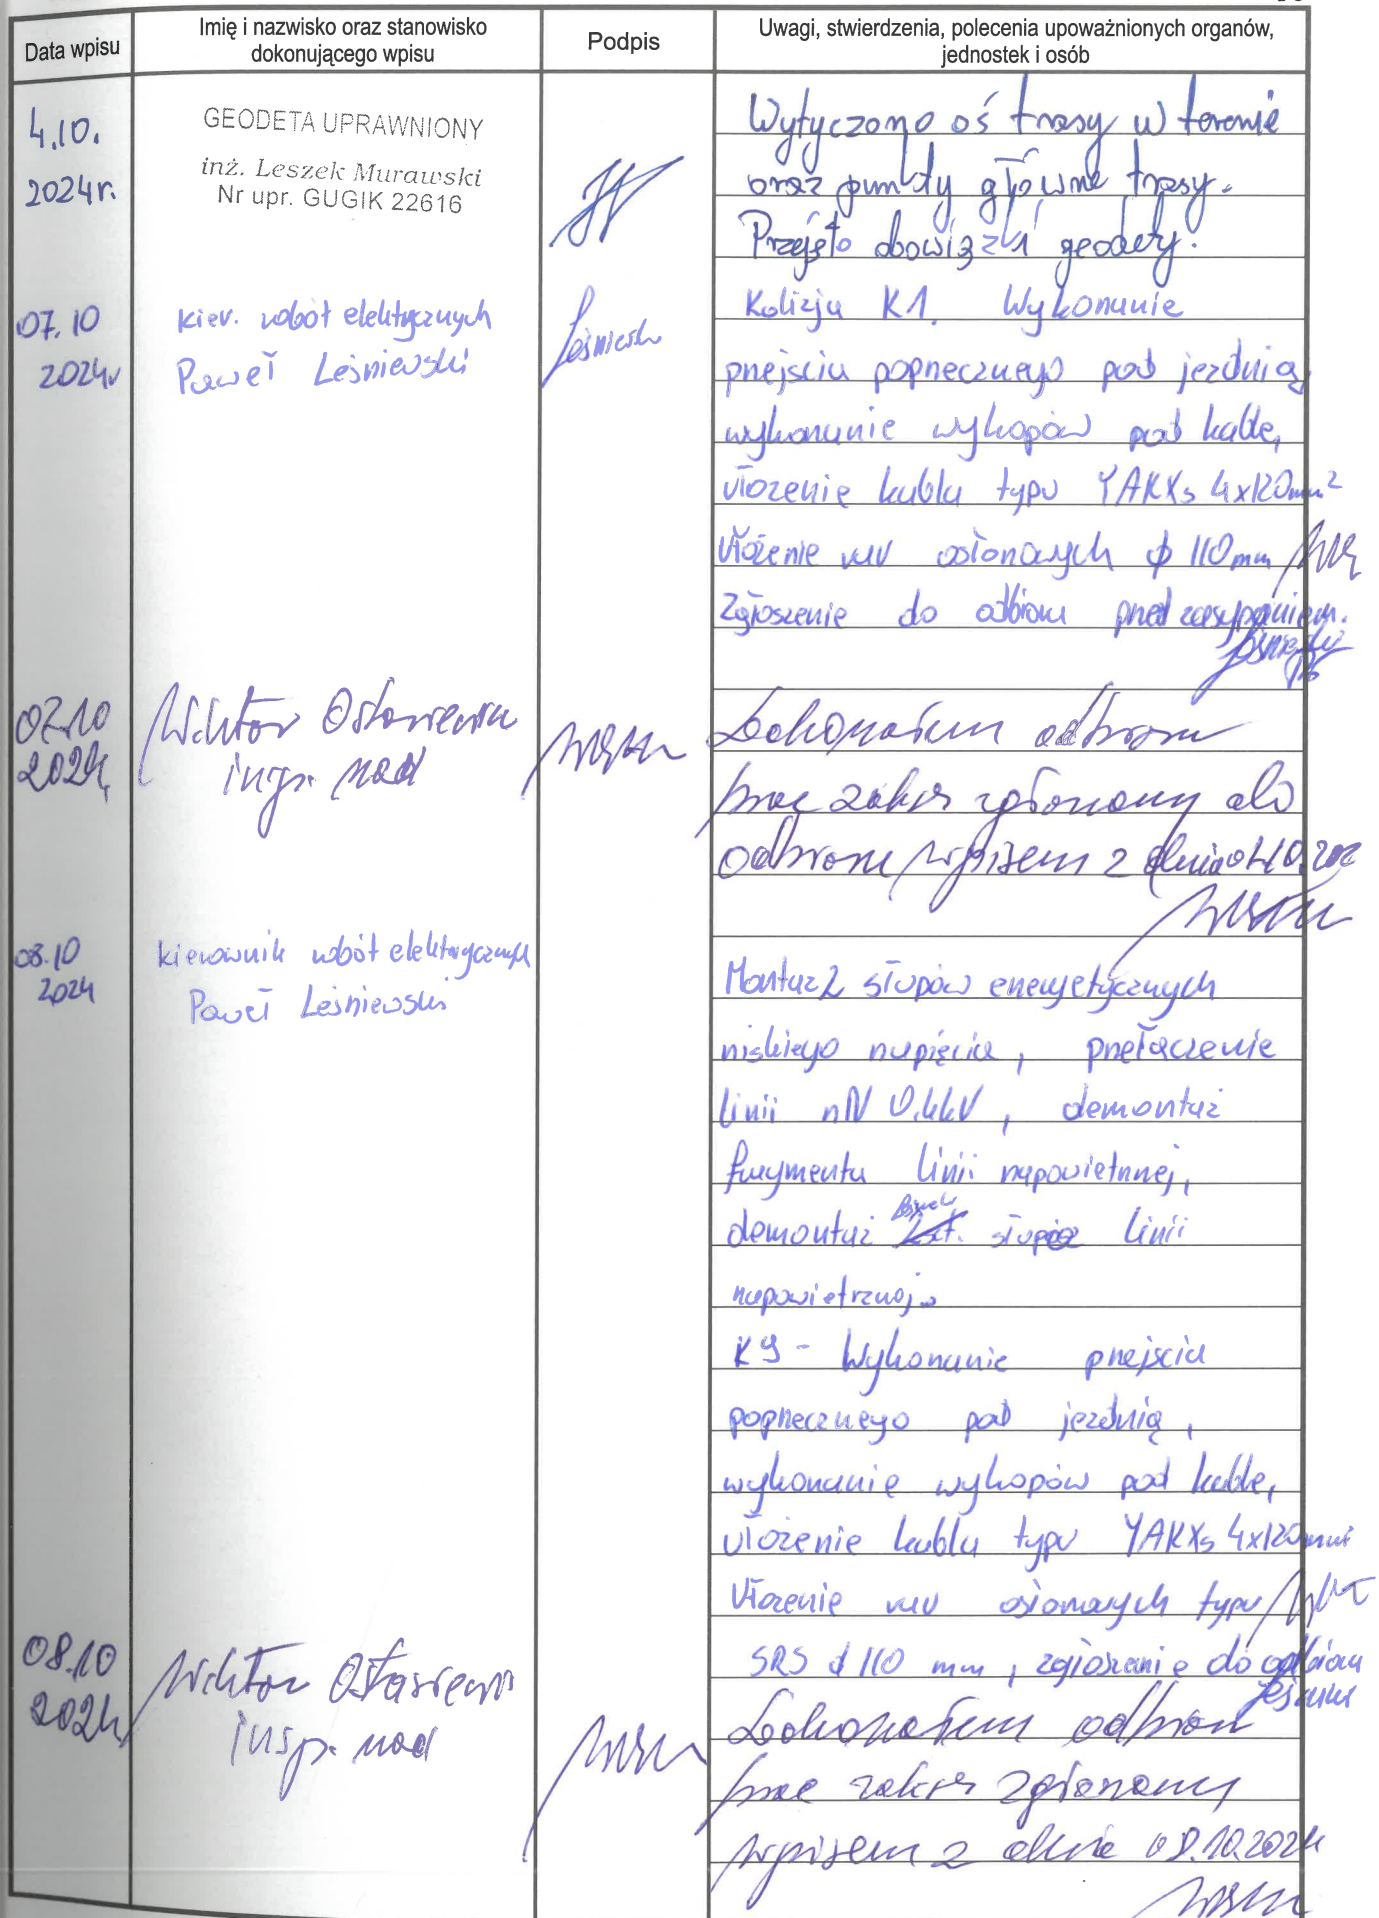 Data wpisu
Imię i nazwisko oraz stanowisko
dokonującego wpisu
Podpis
Uwagi, stwierdzenia, polecenia upoważnionych organów,
jednostek i osób
4.10.
2024r.
GEODETA UPRAWNIONY
inż. Leszek Murawski
Nr upr. GUGIK 22616
Wytyczono oś trasy w terenie
oraz punkty główne trasy.
Przejęto obowiązki geodety.
07.10
2024r
kier. robót elektrycznych
Paweł Leśniewski
Kolizja K1. Wykonanie
przejścia poprzecznego pod jezdnią,
wykonanie wykopów pod kable,
ułożenie kabla typu YAKXs 4x120mm²
Ułożenie rur osłonowych ϕ 110 mm
Zgłoszenie do odbioru przed zasypaniem.
07.10
2024
Wiktor
insp. nad
Dokonałem odbioru
prac zakres zgłoszony do
odbioru wpisem z dnia
08.10
2024
kierownik robót elektrycznych
Paweł Leśniewski
Montaż 2 słupów energetycznych
niskiego napięcia, przełączenie
linii nN 0.4kV, demontaż
fragmentu linii napowietrznej,
demontaż linii
napowietrznej.
K9 - Wykonanie przejścia
poprzecznego pod jezdnią,
wykonanie wykopów pod kable,
ułożenie kabla typu YAKXs 4x120mm²
Ułożenie rur osłonowych typu
SRS ϕ 110 mm, zgłoszenie do odbioru
08.10
2024
Wiktor
insp. nad
Dokonałem odbioru
prac zakres zgłoszony
wpisem z dnia 08.10.2024